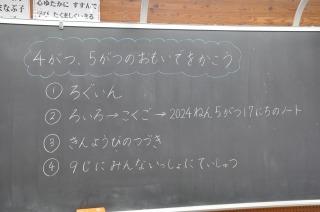 心ゆたかに すすんで
まなぶ子
たくましくいきる
4がつ、5がつのおもいでをかこう
① ろぐいん
② ろいろ→こくご→2024ねん5がつ17にちのノート
③ きんようびのつづき
④ 9じにみんないっしょにていしゅつ